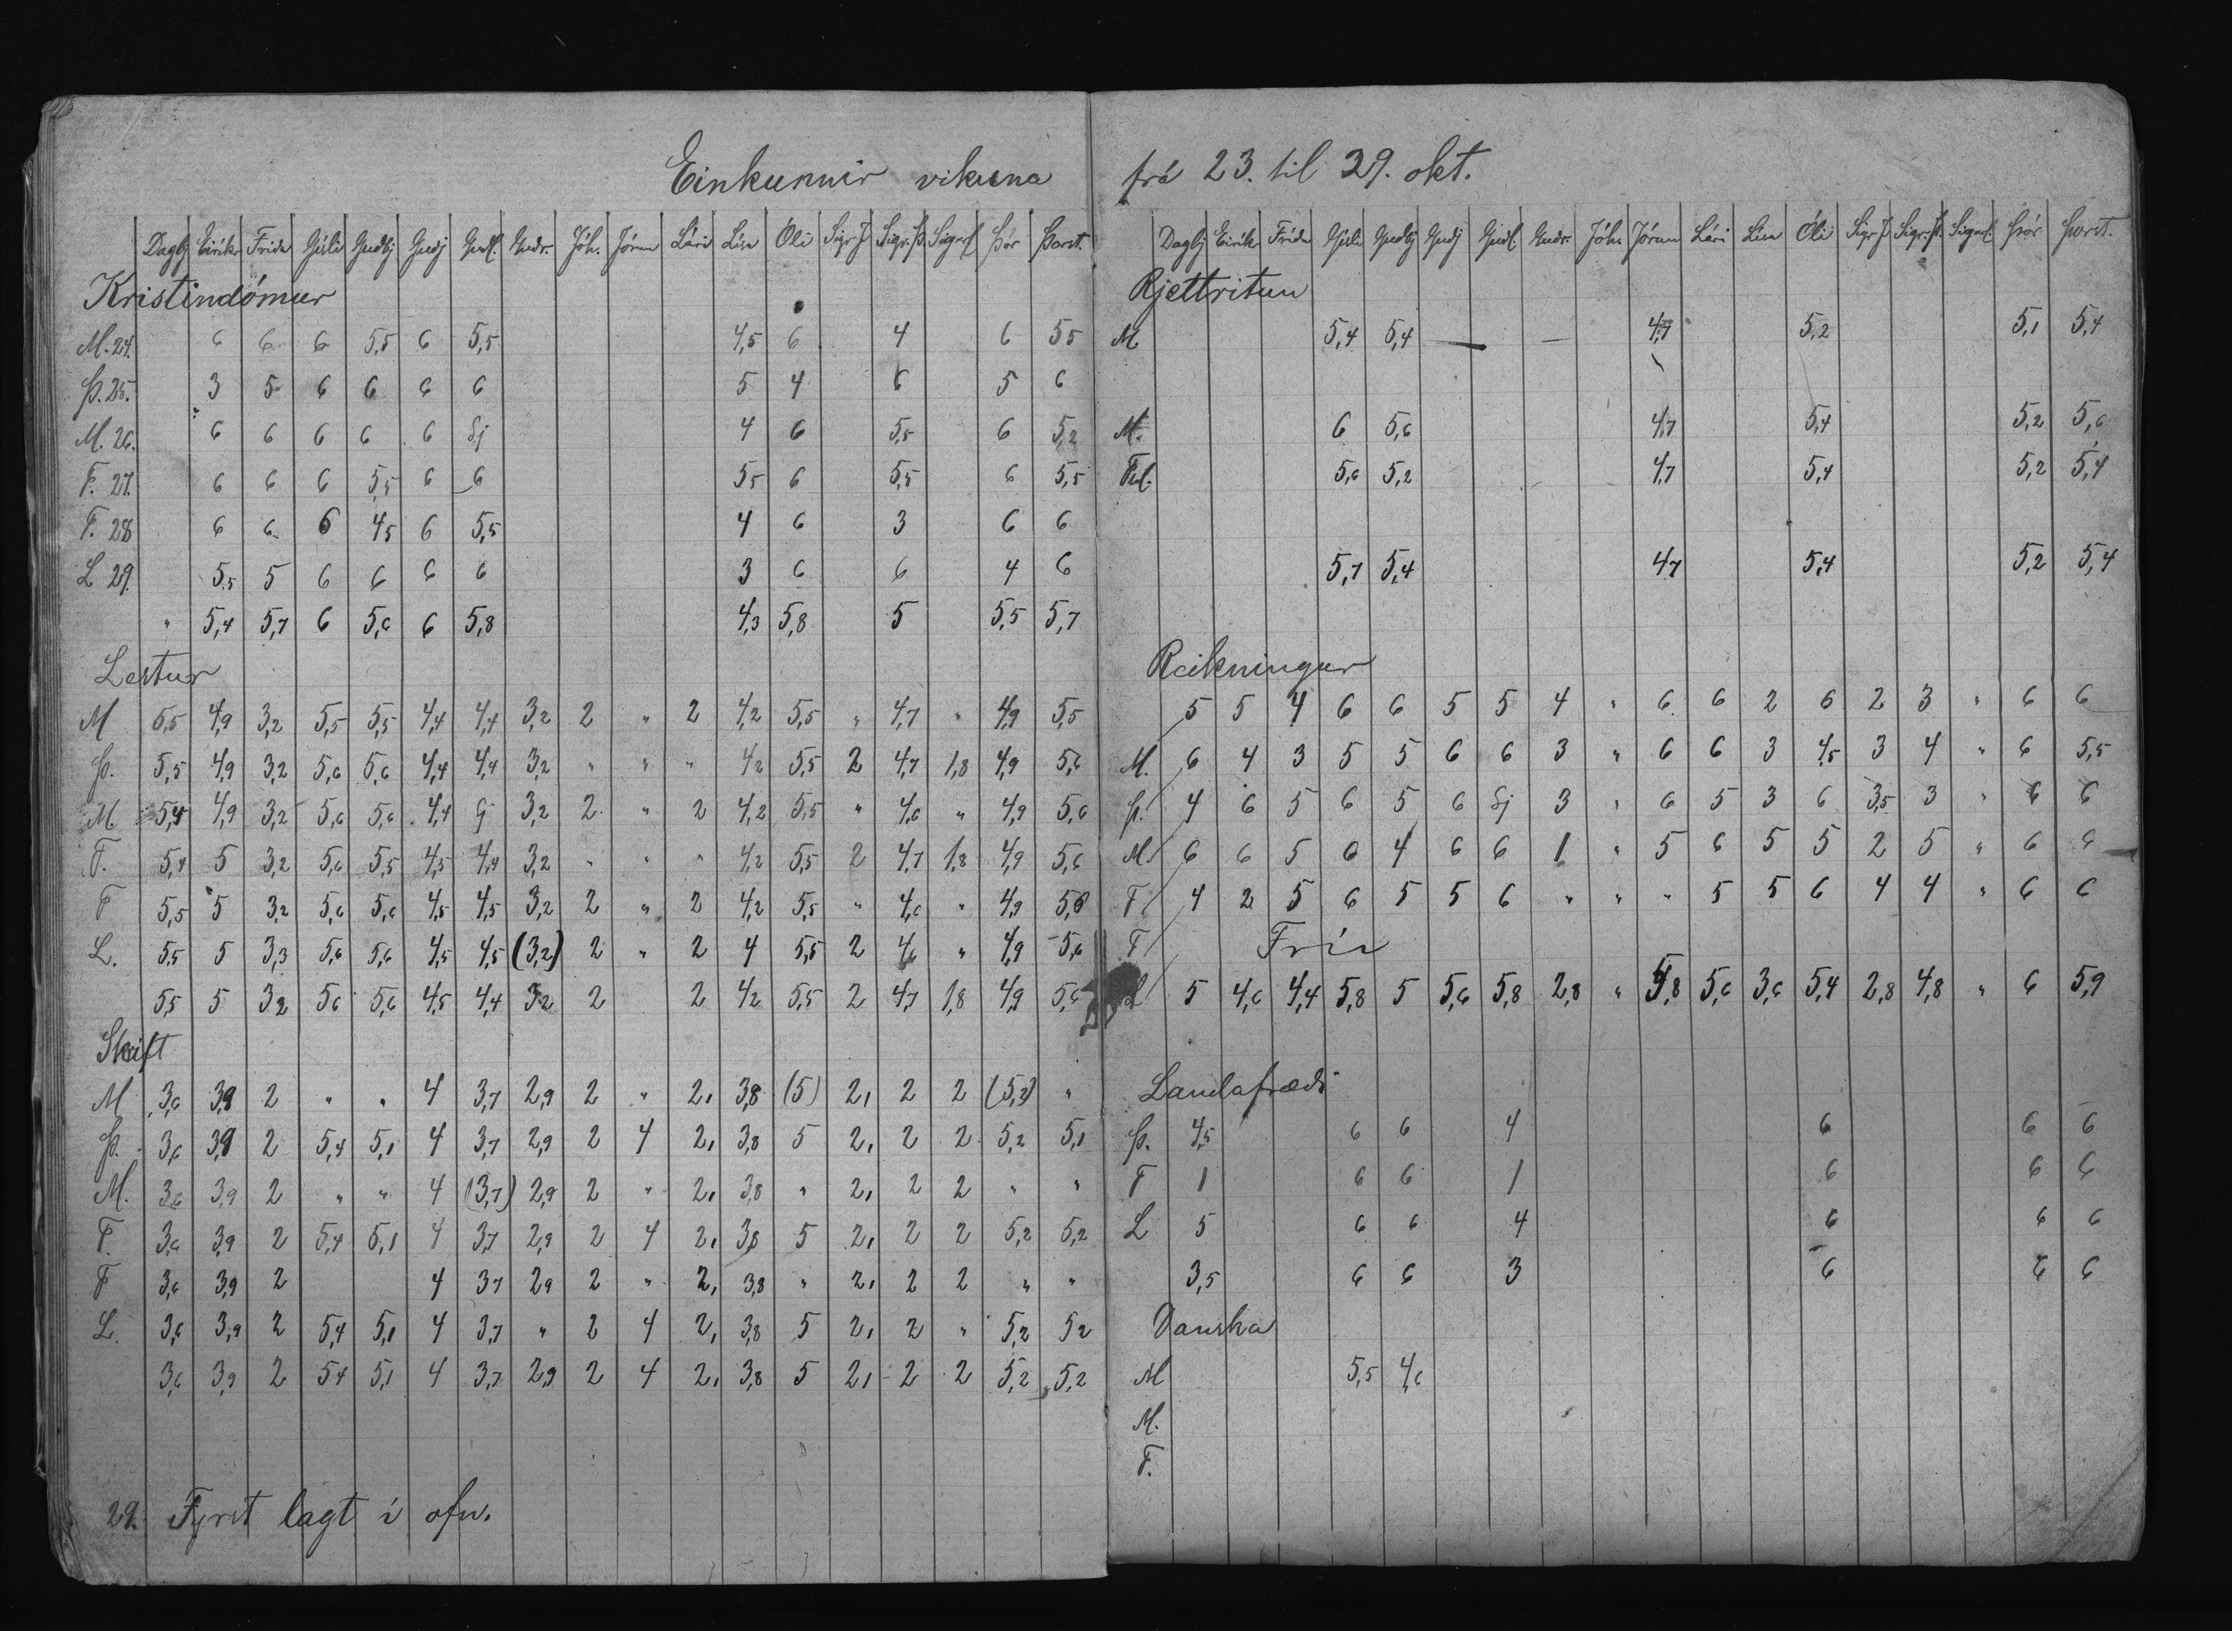 Einkunnir vikuna
Dagbj Eiríkr Fríða Gísli Guðbj Guðj Guðl. Guðr. Jóh. Jórun Lári Lína Óli Sigr J Sigr. Þ. Sigurl Þór Þorst.
Kristindómur
M. 24. 6 6 6 5,5 6 5,5 4,5 6 4 6 5 5
Þ. 25. 3 5 6 6 6 6 5 4 6 5 6
M. 26. 6 6 6 6 6 Sj 4 6 5,5 6 5,2
F. 27. 6 6 6 5,5 6 6 5 5 6 5,5 6 5,5
F. 28 6 6 6 4 5 6 5,5 4 6 3 6 6
L 29. 5,5 5 6 6 6 6 3 6 6 4 6
" 5,4 5,7 6 5,6 6 5,8 4,3 5,8 5 5,5 5,7
Lestur
M 5,5 4,9 3,2 5,5 5,5 4,4 4,4 3,2 2 " 2 4,2 5,5 " 4,7 " 4,9 5,5
Þ. 5,5 4,9 3,2 5,6 5,6 4,4 4,4 3,2 " " " 4,2 5,5 2 4,7 1,8 4,9 5,6
M. 5,4 4,9 3,2 5,6 5,6 4,4 Sj 3,2 2 " 2 4,2 5,5 " 4,6 " 4,9 5,6
F. 5,4 5 3,2 5,6 5,5 4,5 4,4 3,2 " " " 4,2 5,5 2 4,7 1,8 4,9 5,6
F 5,5 5 3,2 5,6 5,6 4,5 4,5 3,2 2 " 2 4,2 5,5 " 4,6 " 4,9 5,6
L. 5,5 5 3,3 5,6 5,6 4,5 4,5 (3,2) 2 " 2 4 5,5 2 4,6 " 4,9 5,6
5,5 5 3,2 5 6 5,6 4,5 4,4 3,2 2 2 4,2 5,5 2 4,7 1,8 4,9 5,6
Skrift
M 3,6 3,9 2 " " 4 3,7 2,9 2 " 2,1 3,8 (5) 2,1 2 2 (5,2) "
Þ. 3,6 3,9 2 5,4 5,1 4 3,7 2,9 2 4 2,1 3,8 5 2,1 2 2 5,2 5,1
M. 3,6 3,9 2 " " 4 (3,7) 2,9 2 " 2,1 3,8 " 2,1 2 2 " "
F. 3,6 3,9 2 5,4 5,1 4 3,7 2,9 2 4 2,1 3,8 5 2,1 2 2 5,2 5,2
F 3,6 3,9 2 4 3,7 2,9 2 " 2,1 3,8 " 2,1 2 2 " "
L. 3,6 3,9 2 5,4 5,1 4 3,7 " 2 4 2,1 3,8 5 2,1 2 " 5,2 5 2
3,6 3,9 2 5 4 5,1 4 3,7 2,9 2 4 2,1 3,8 5 2,1 2 2 5,2 5,2
29. Fyrst lagt í ofn.
frá 23. til 29. okt.
Dagbj Eirík. Fríða Gísli Guðbj Guðj Guðl. Guðr. Jóh. Jórun Lári Lína Óli Sigr J Sigr. Þ. Sigurl. Þór Þorst.
Rjettritun
M 5,4 5,4 — — 4,7 5,2 5,1 5,4
M. 6 5,6 4,7 5,4 5,2 5,6
5,6 5,2 4,7 5,4 5,2 5,4
5,7 5,4 4,7 5,4 5,2 5,4
Reikningur
5 5 4 6 6 5 5 4 " 6 6 2 6 2 3 " 6 6
M. 6 4 3 5 5 6 6 3 " 6 6 3 4,5 3 4 " 6 5,5
Þ. 4 6 5 6 5 6 Sj 3 " 6 5 3 6 3,5 3 " 6 6
M. 6 6 5 6 4 6 6 1 " 5 6 5 5 2 5 " 6 6
F 4 2 5 6 5 5 6 " " " 5 5 6 4 4 " 6 6
F Frí
L 5 4,6 4,4 5,8 5 5,6 5,8 2,8 " 5,8 5,6 3,6 5,4 2,8 4,8 " 6 5,9
Landafræði
Þ. 4,5 6 6 4 6 6 6
F 1 6 6 1 6 6 6
L 5 6 6 4 6 6 6
3,5 6 6 3 6 6 6
Danska
M 5,5 4,6
M.
F.